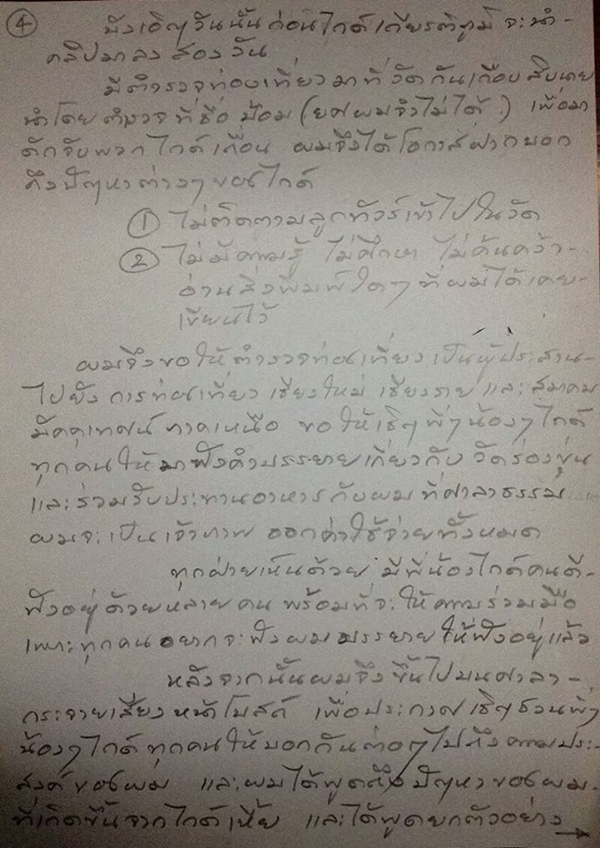 ④ บังเอิญวันนั้นก่อนไกด์เกียรติภูมิ จะนำ-
คลิปมาลงสองวัน
มีตำรวจท่องเที่ยวมาที่วัดกันเกือบสิบนาย
นำโดยตำรวจที่ชื่อ ป้อม (ยศผมจำไม่ได้) เพื่อมา
ดักจับพวกไกด์เถื่อน ผมจึงได้โอกาสฝากบอก
ถึงปัญหาต่างๆของไกด์
① ไม่ติดตามลูกทัวร์เข้าไปในวัด
② ไม่มีความรู้ ไม่ศึกษา ไม่ค้นคว้า-
อ่านสิ่งพิมพ์ใดๆ ที่ผมได้เคย-
เขียนไว้
ผมจึงขอให้ตำรวจท่องเที่ยว เป็นผู้ประสาน-
ไปยัง การท่องเที่ยว เชียงใหม่ เชียงราย และ สมาคม
มัคคุเทศน์ ภาคเหนือ ขอให้เชิญพี่ๆน้องๆไกด์
ทุกคนให้มาฟังคำบรรยายเกี่ยวกับ วัดร่องขุ่น
และร่วมรับประทานอาหารกับผม ที่ศาลาธรรม
ผมจะเป็นเจ้าภาพ ออกค่าใช้จ่ายทั้งหมด
ทุกฝ่ายเห็นด้วย มีพี่น้องไกด์คนดี-
ฟังอยู่ด้วยหลายคน พร้อมที่จะให้ความร่วมมือ
เพราะทุกคนอยากจะฟังผมบรรยายให้ฟังอยู่แล้ว
หลังจากนั้นผมจึงขึ้นไปบนศาลา-
กระจายเสียงหน้าโบสถ์ เพื่อประกาศเชิญชวนพี่ๆ
น้องๆไกด์ทุกคนให้บอกกันต่อๆไปถึงความประ-
สงค์ของผม และผมได้พูดถึงปัญหาของผม-
ที่เกิดขึ้นจากไกด์เหี้ย และได้พูดยกตัวอย่าง →